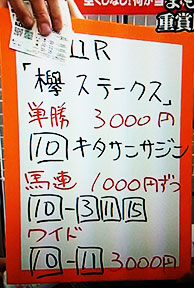 11R
「欅ステークス」
単勝 3000円
10 キタサンサジン
馬連 1000円ずつ
10-3 11 15
ワイド
10-11 3000円
重賞